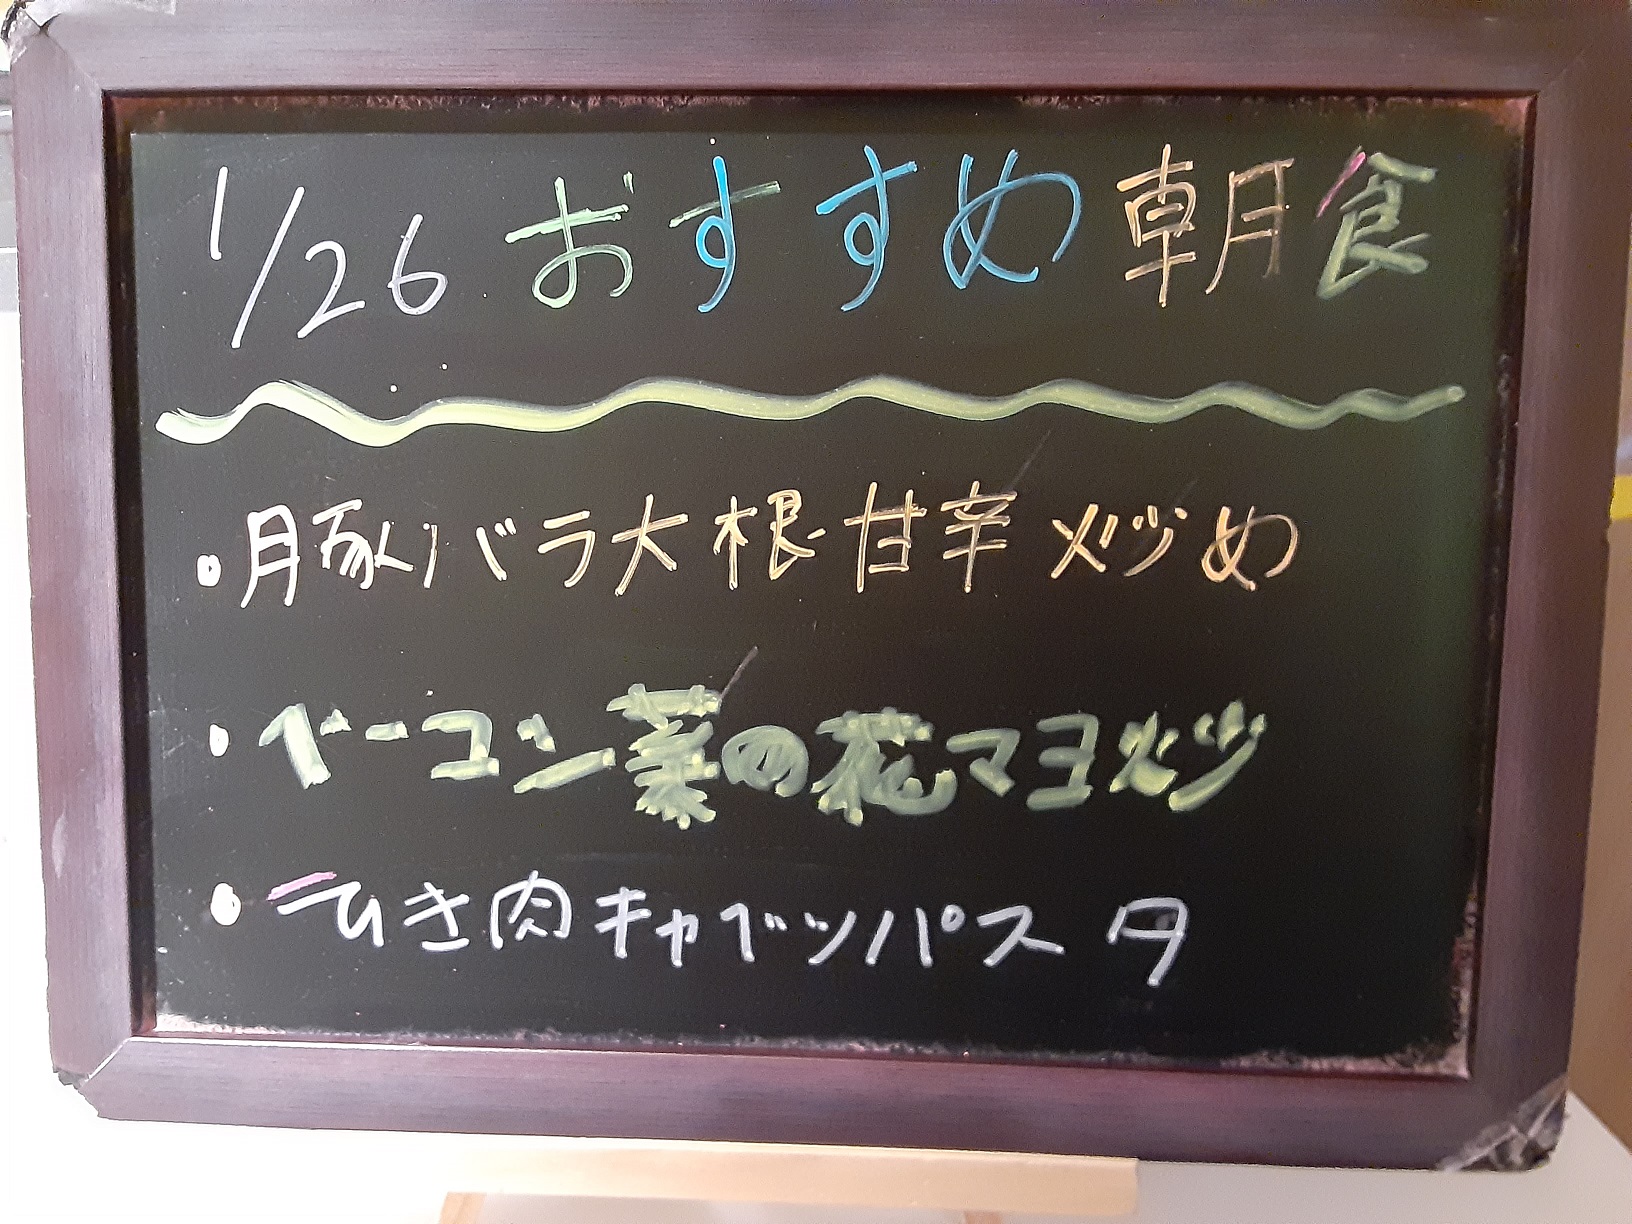 1/26 おすすめ朝食
・豚バラ大根甘辛炒め
・ベーコン菜の花マヨ炒
・ひき肉キャベツパスタ